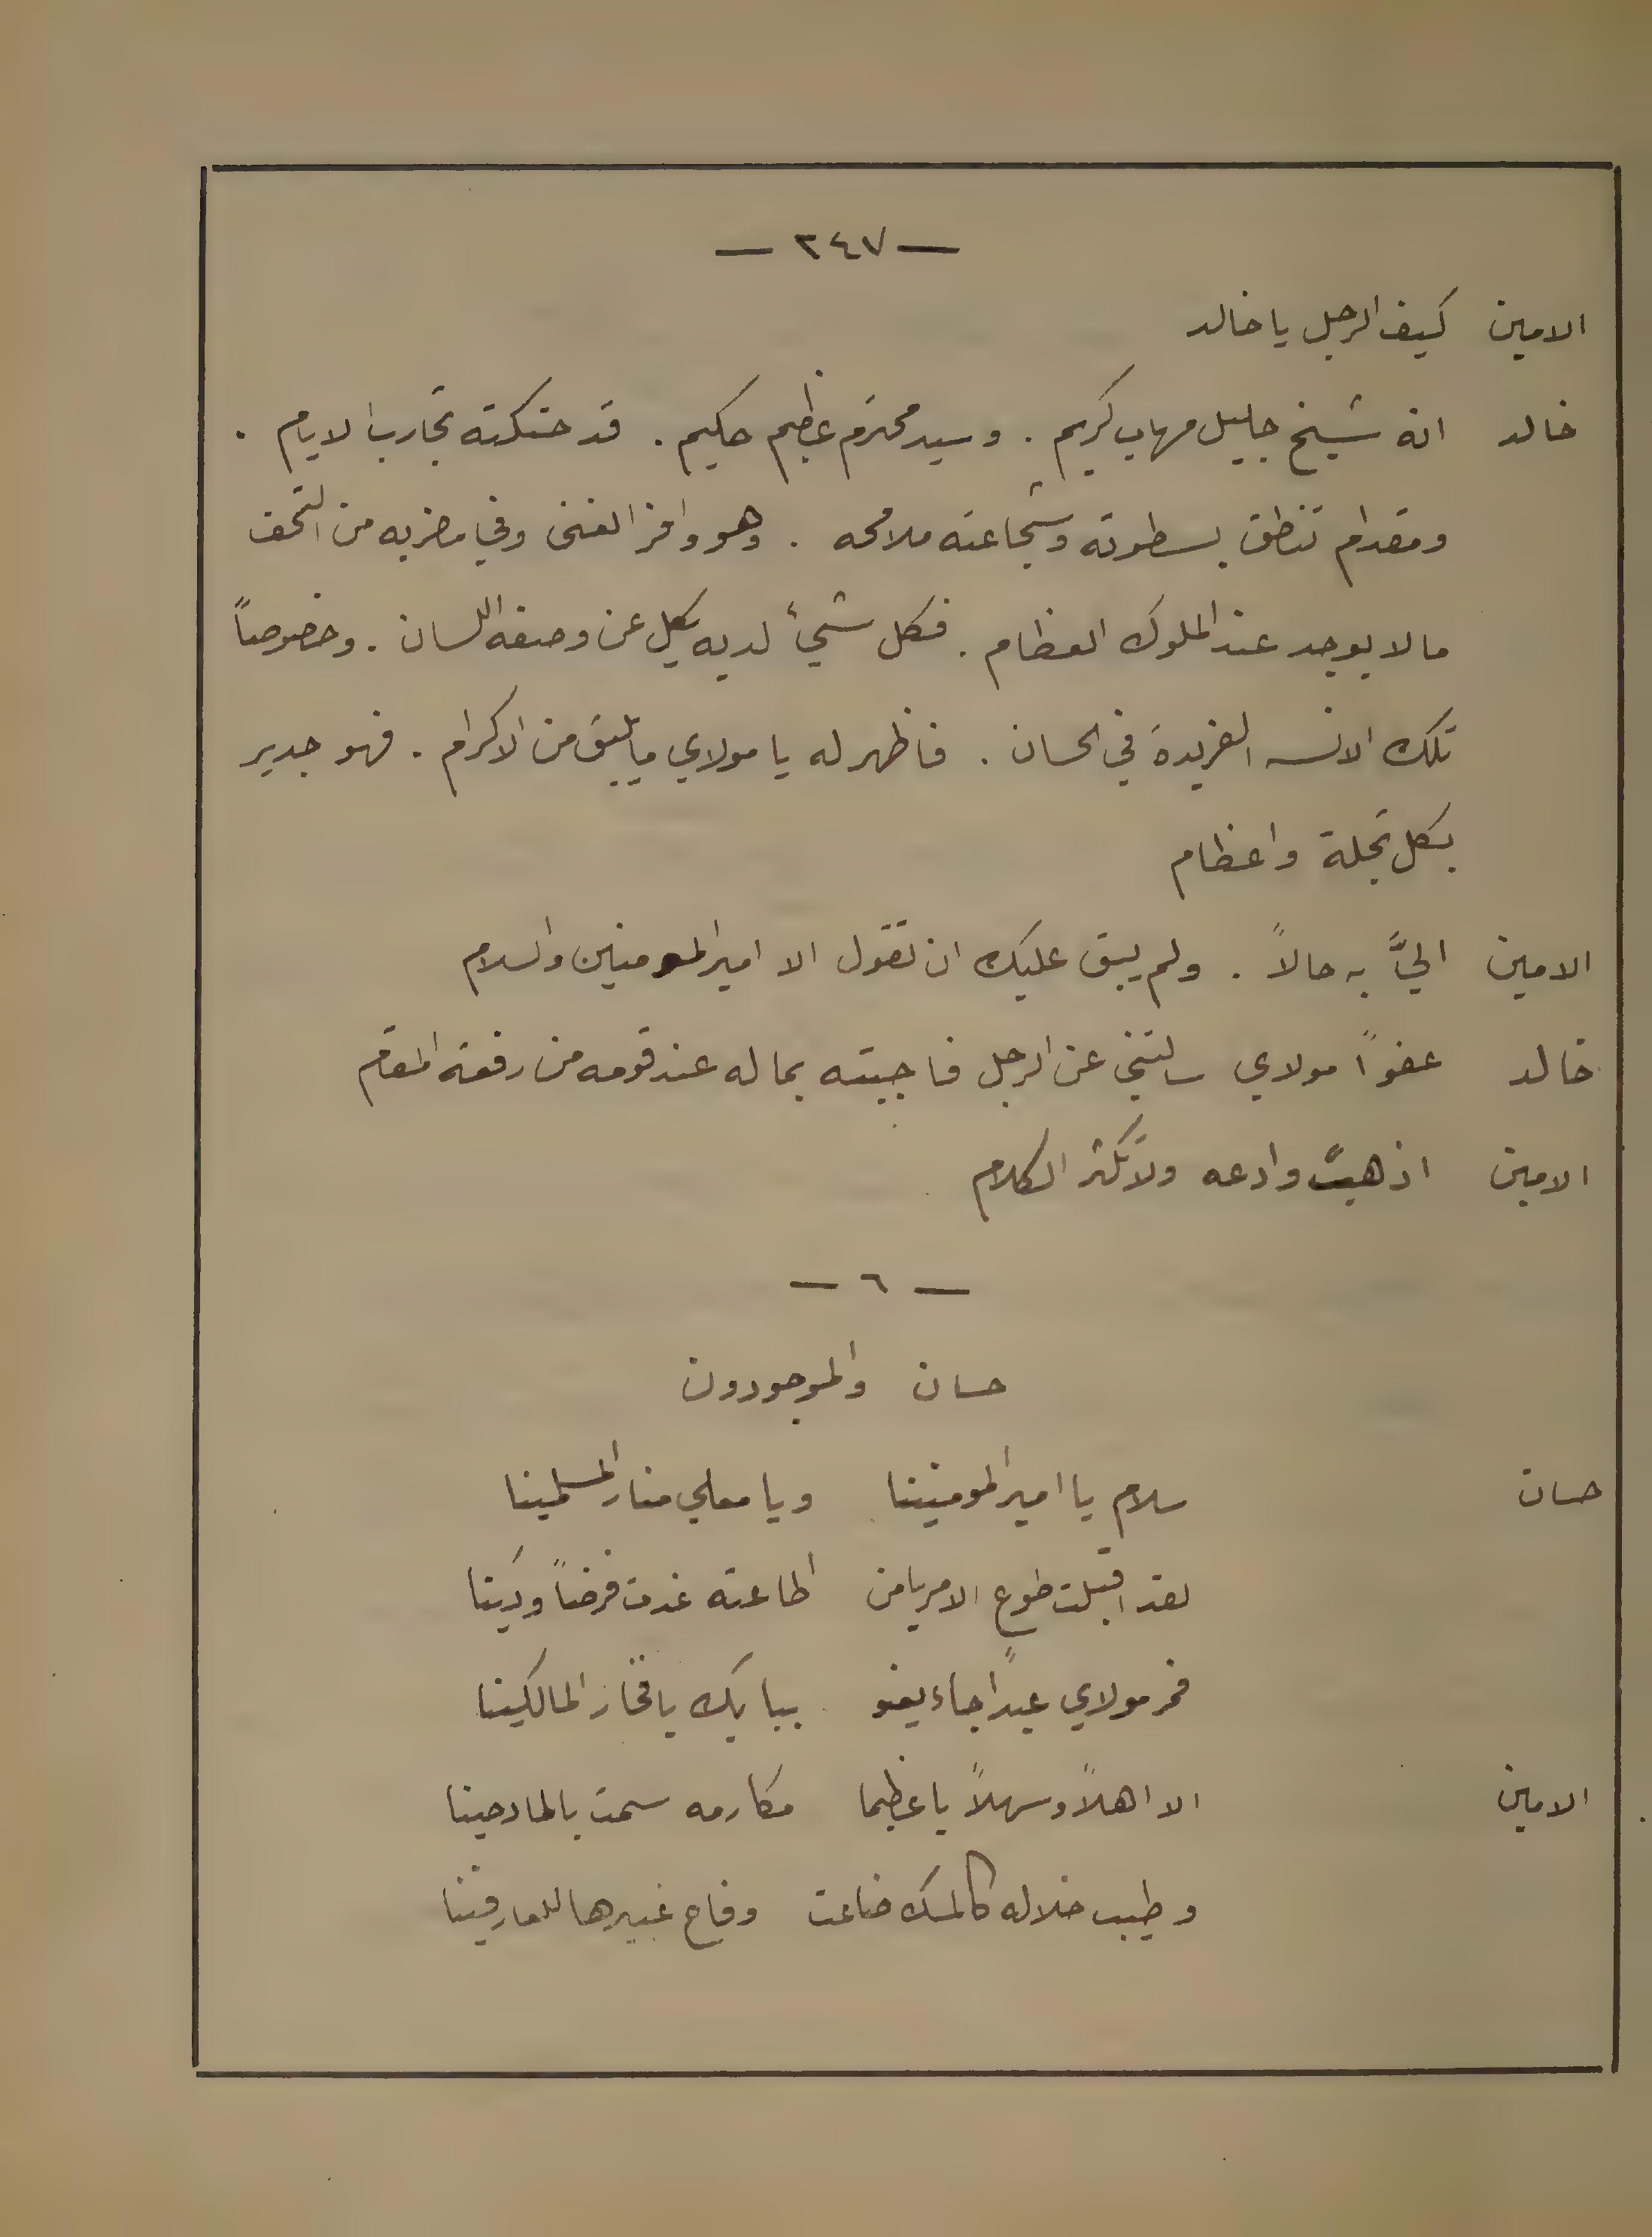 — ٢٤٧ —
الامين كيف الرجل يا خالد
خالد انه شيخ جليل مهاب كريم . وسيد محترم عظيم حكيم . قد حنكته تجارب الايام .
ومقدام تنطق بسطوته وشجاعته ملامحه . وهو وافر الغنى وفي مضربه من التحف
ما لا يوجد عند الملوك العظام . فكل شيء لديه يكل عن وصفه اللسان . وخصوصاً
تلك الانسه الفريدة في الحسان . فاظهر له يا مولاي ما يليق من الاكرام . فهو جدير
بكل تجلة واعظام
الامين اليَّ به حالاً . ولم يبق عليك ان تقول الا امير المومنين والسلام
خالد عفواً مولاي سالتني عن الرجل فاجبته بما له عند قومه من رفعة المقام
الامين اذهب وادعه ولا تكثر الكلام
— ٦ —
حسان والموجودون
حسان سلام يا امير المومنينا ويا معلي منار المسلمينا
لقد اقبلت طوع الامر يا من اطاعته غدت فرضاً ودينا
فمر مولاي عبداً جاء يعنو ببابك يا فخار المالكينا
الامين الا اهلاً وسهلاً يا عظيما مكارمه سمت بالمادحينا
وطيب خلاله كالمسك ضاعت وفاح عبيرها للعارفينا